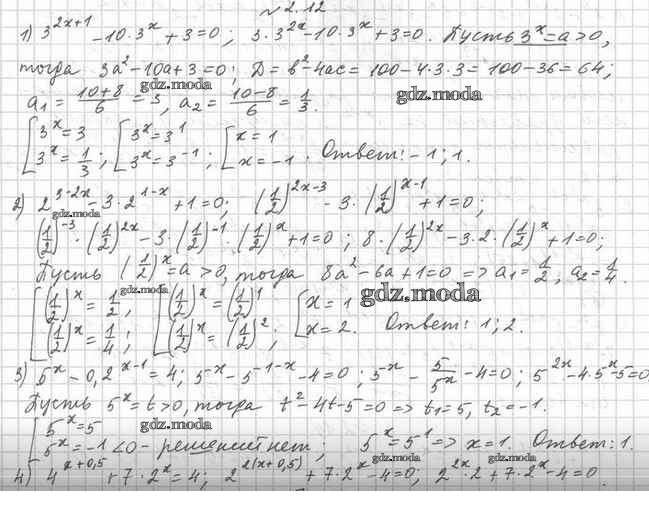 № 2.12
1) 3^{2x+1} - 10·3^x + 3 = 0; 3·3^{2x} - 10·3^x + 3 = 0. Пусть 3^x = a > 0,
тогда 3a² - 10a + 3 = 0; D = b² - 4ac = 100 - 4·3·3 = 100 - 36 = 64;
a₁ = (10+8)/6 = 3, a₂ = (10-8)/6 = 1/3.
gdz.moda
[3^x = 3 [3^x = 3^1 [x = 1
[3^x = 1/3; [3^x = 3^{-1}; [x = -1. Ответ: -1; 1.
2) 2^{3-2x} - 3·2^{1-x} + 1 = 0; (1/2)^{2x-3} - 3·(1/2)^{x-1} + 1 = 0;
gdz.moda
(1/2)^{-3}·(1/2)^{2x} - 3·(1/2)^{-1}·(1/2)^x + 1 = 0; 8·(1/2)^{2x} - 3·2·(1/2)^x + 1 = 0;
Пусть (1/2)^x = a > 0, тогда 8a² - 6a + 1 = 0 => a₁ = 1/2, a₂ = 1/4.
gdz.moda gdz.moda
[(1/2)^x = 1/2, [(1/2)^x = (1/2)^1 [x = 1
[(1/2)^x = 1/4; [(1/2)^x = (1/2)^2; [x = 2. Ответ: 1; 2.
3) 5^{-x} - 0,2^{x-1} = 4; 5^{-x} - 5^{-1-x} - 4 = 0; 5^{-x} - 5/5^x - 4 = 0; 5^{2x} - 4·5^x - 5 = 0
Пусть 5^x = t > 0, тогда t² - 4t - 5 = 0 => t₁ = 5, t₂ = -1.
gdz.moda
[5^{-x} = 5
[5^{-x} = -1 < 0 - решений нет; 5^x = 5^1 => x = 1. Ответ: 1.
gdz.moda gdz.moda
4) 4^{x+0,5} + 7·2^x = 4; 2^{2(x+0,5)} + 7·2^x - 4 = 0; 2^{2x}·2 + 7·2^x - 4 = 0.